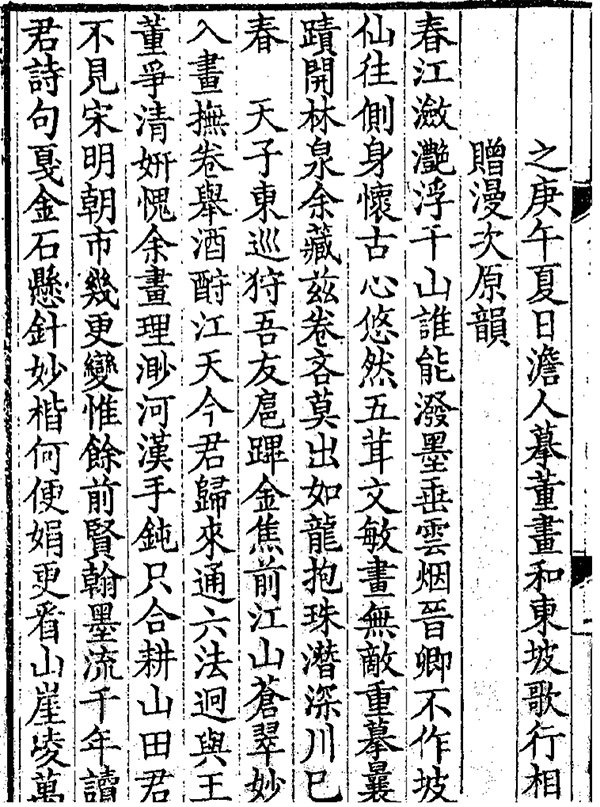 之庚午夏日澹人摹董畫和東坡歌行相
贈漫次原韻
春江瀲灧浮千山誰能潑墨垂雲烟晉卿不作坡
仙往側身懷古心悠然五茸文敏畫無敵重摹曩
蹟開林泉余藏兹卷吝莫出如龍抱珠潛深川已
春　天子東巡狩吾友扈蹕金焦前江山蒼翠妙
入畫撫卷舉酒酹江天今君歸來通六法迥與王
董爭清妍愧余畫理渺河漢手鈍只合耕山田君
不見宋明朝市幾更變惟餘前賢翰墨流千年讀
君詩句戛金石懸針妙楷何便娟更看山崖凌萬